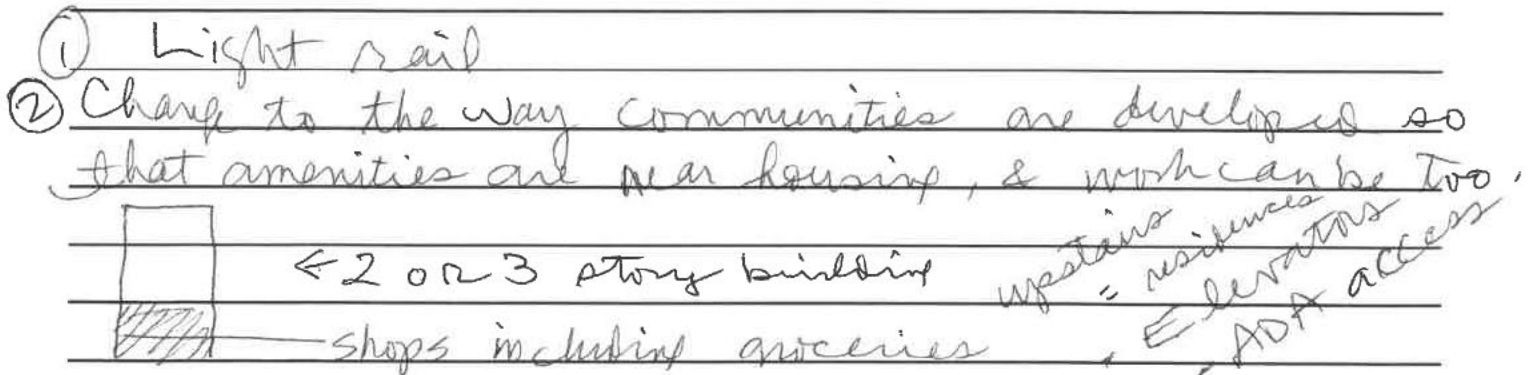 ① Light rail
② Change to the way communities are developed so
that amenities are near housing, & work can be too.
← 2 or 3 story building
shops including groceries
upstairs
= residences
, Elevators
, ADA access